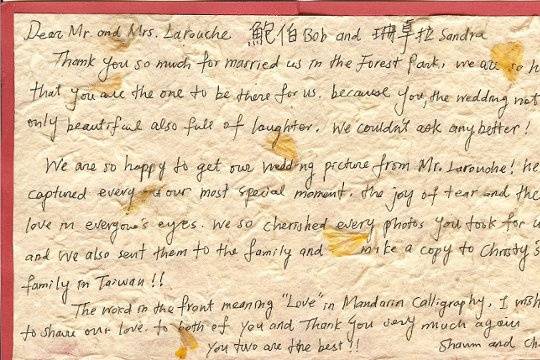 Dear Mr. and Mrs. Larouche 鮑伯 Bob and 珊卓拉 Sandra
Thank you so much for married us in the Forest Park, we are so h
that you are the one to be there for us. because you, the wedding not
only beautiful also full of laughter. We couldn't ask any better!
We are so happy to get our wedding picture from Mr. Larouche! he
captured every our most special moment. the joy of tear and the
love in everyone's eyes. We so cherished every photos you took for u
and We also sent them to the family and make a copy to Christy's
family in Taiwan!!
The word in the front meaning "Love" in Mandarin Calligraphy. I wish
to share our love to both of you and Thank You very much again
You two are the best!! Shawn and Ch